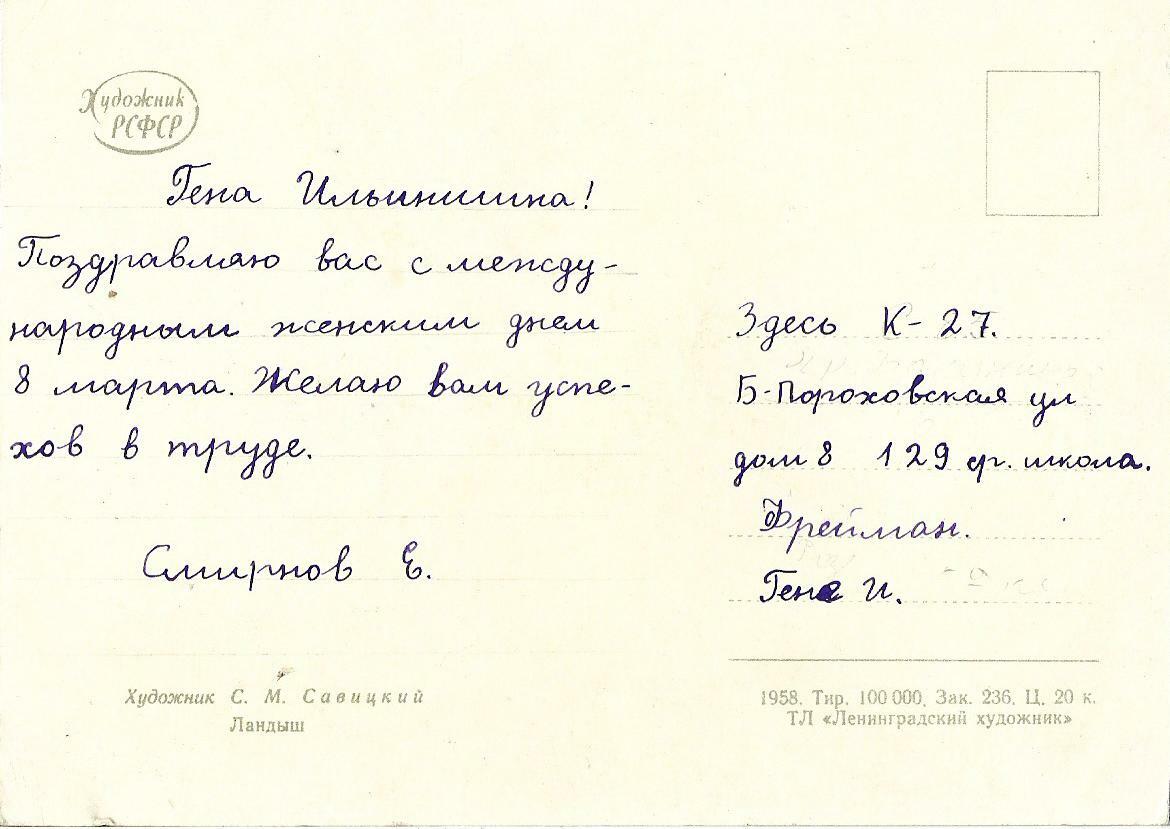 Художник
РСФСР
Гена Ильинишна!
Поздравляю вас с между-
народным женским днем
8 марта. Желаю вам успе-
хов в труде.
Смирнов Е.
Художник С. М. Савицкий
Ландыш
Здесь К-27.
Б-Пороховская ул
дом 8 129 ср. школа.
Фрейман.
Гене И.
1958. Тир. 100 000. Зак. 236. Ц. 20 к.
ТЛ «Ленинградский художник»